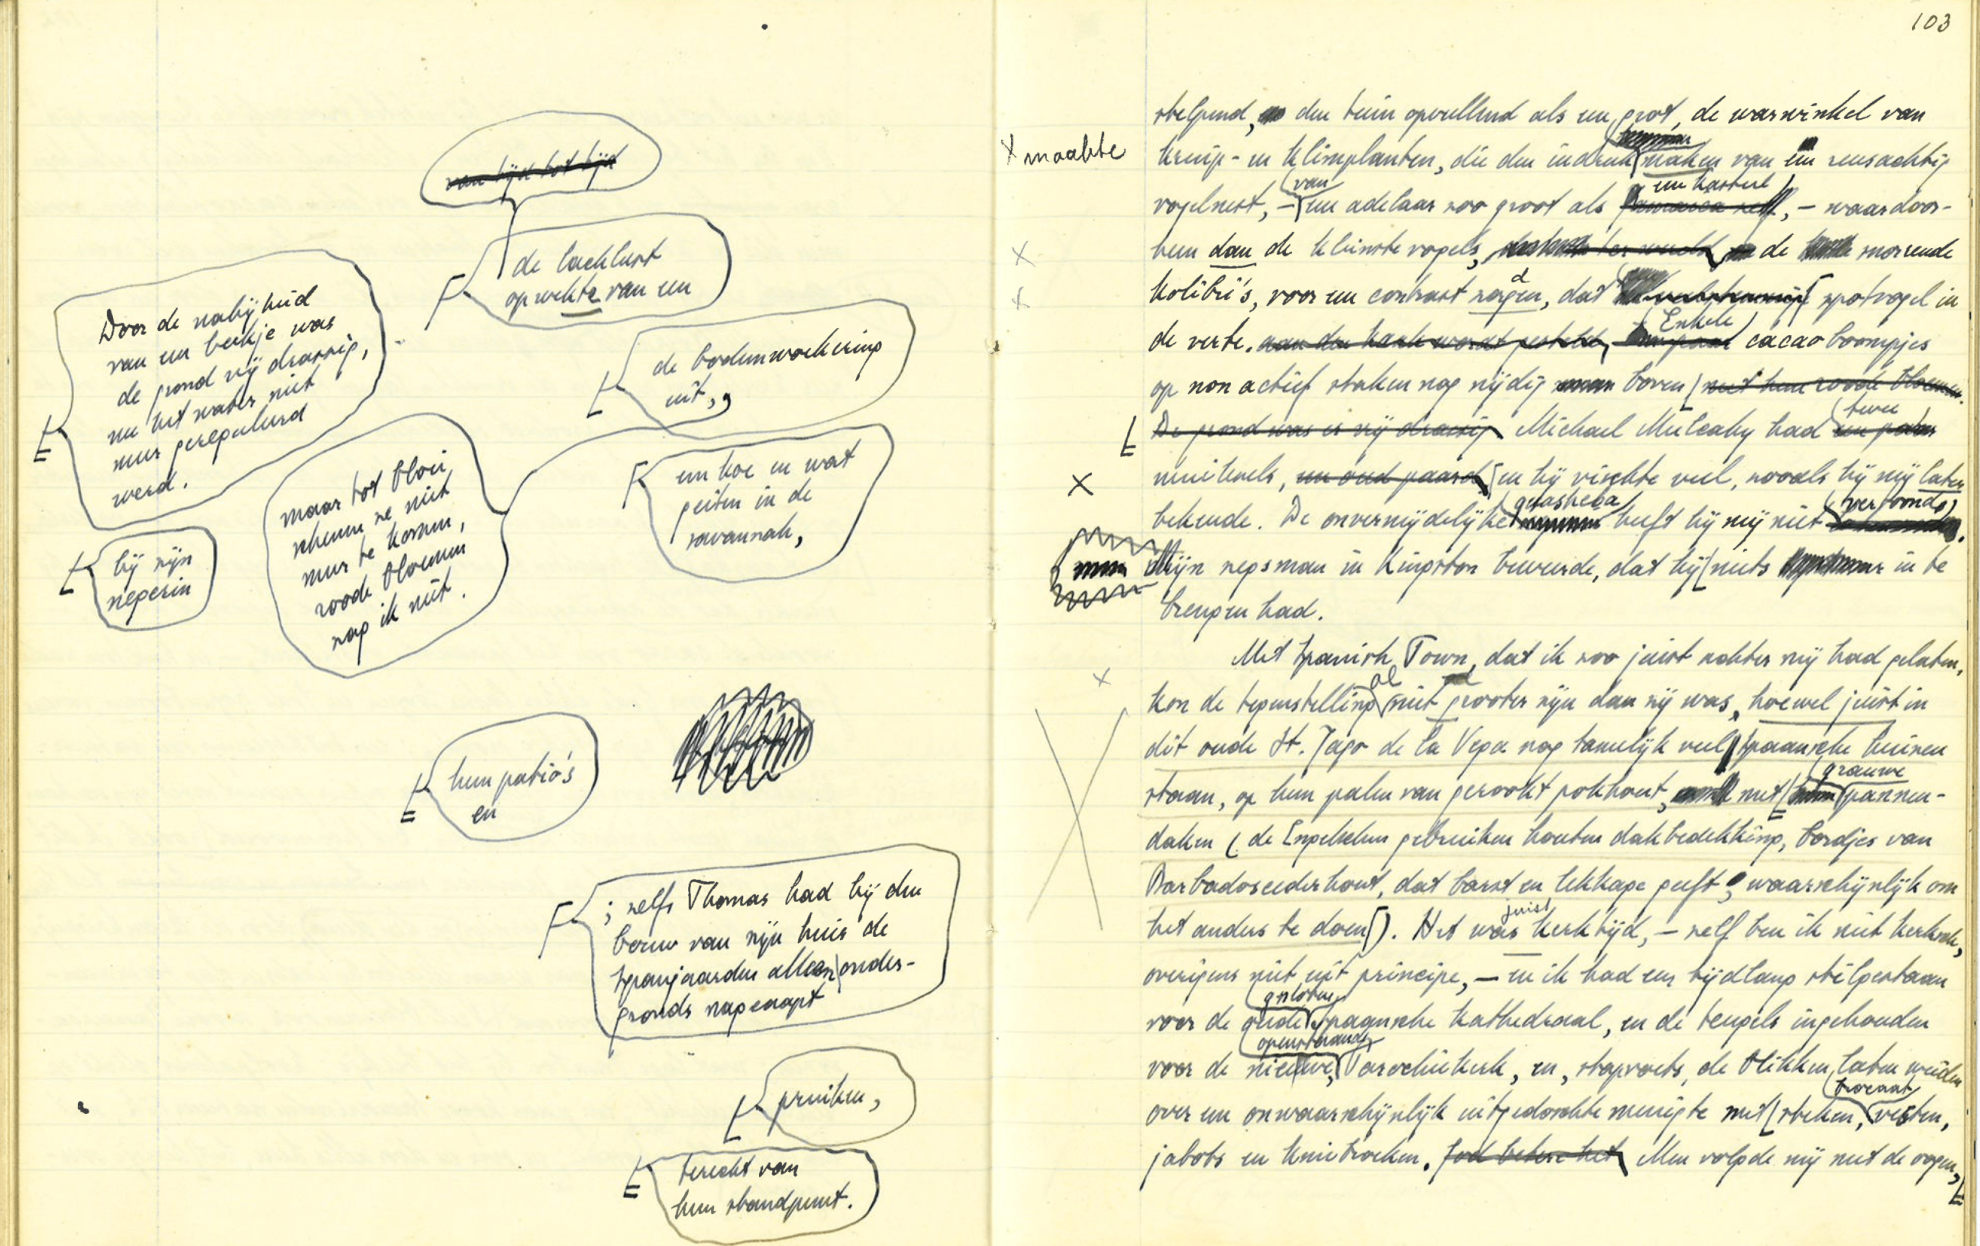 van tijd tot tijd
de lachlust
opwekte van een
Door de nabijheid
van een beekje was
de grond vrij drassig,
nu het water niet
meer gereguleerd
werd.
de bodemwoekering
uit,
maar tot bloei
schenen ze niet
meer te komen,
roode bloemen
zag ik niet.
een koe en wat
geiten in de
savannah,
bij zijn
negerin
hun patio's
en
; zelfs Thomas had bij den
bouw van zijn huis de
Spanjaarden alleen onder-
gronds nageaapt
pruiken,
terecht van
hun standpunt.
103
stelpend, den tuin opvullend als een grot, de warwinkel van
x maakte
kruip- en klimplanten, die den indruk maken van een reusachtig
van een kasteel
vogelnest, – een adelaar zoo groot als Jamaica zelf, – waardoor-
heen dan de kleinste vogels, de snorrende
kolibri's, voor een contrast zorgen, dat spotvogel in
Enkele
de verte. aan den haak wordt gesteld, een paar cacaoboompjes
op non actief staken nog nijdig boven met hun roode bloemen.
twee
De grond was er vrij drassig Michael Mulcahy had een paar
muilezels, een oud paard, en hij vischte veel, zooals hij mij later
quasheba vertoond
bekende. De onvermijdelijke heeft hij mij niet
Mijn zegsman in Kingston beweerde, dat hij niets in te
brengen had.
Met Spanish Town, dat ik zoo juist achter mij had gelaten,
al
kon de tegenstelling niet grooter zijn dan zij was, hoewel juist in
dit oude St. Jago de la Vega nog tamelijk veel Spaansche huizen
grauwe
staan, op hun palen van gerookt pokhout, met pannen-
daken (de Engelschen gebruiken houten dakbedekking, bordjes van
Barbadosceder hout, dat barst en lekkage geeft, waarschijnlijk om
juist
het anders te doen). Het was kerktijd, – zelf ben ik niet kerksch,
overigens niet uit principe, – en ik had een tijdlang stilgestaan
gesloten
voor de oude Spaansche kathedraal, en de teugels ingehouden
openstaande
voor de nieuwe, Parochiekerk, en, stapvoets, de blikken laten weiden
brocaat
over een onwaarschijnlijk uitgedoschte menigte met steken, vesten,
jabots en kniebroeken. God betere het, Men volgde mij met de oogen,